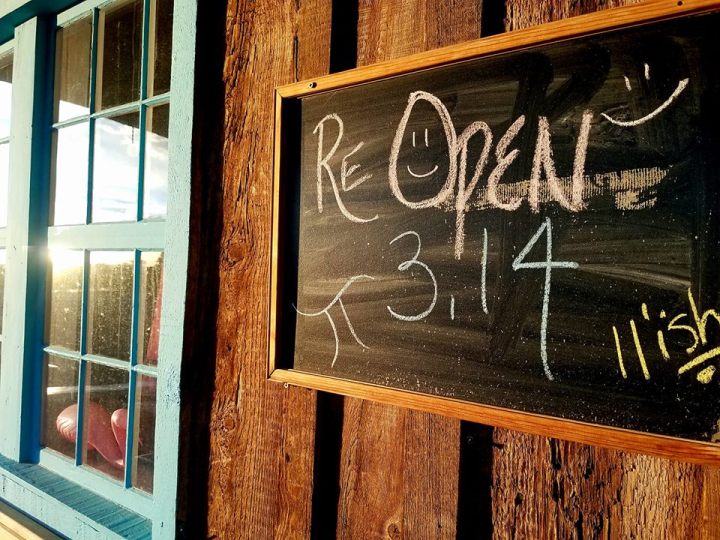 Re OPEN
π 3.14
11'ish